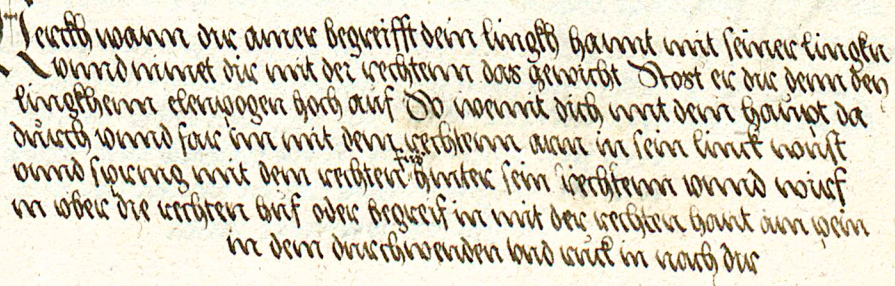 Merckh wann dir ainer begreifft dein lingkh hannt mit seiner lingkn
vnnd nimet dir mit der rechtenn das gewicht Stost er dir denn den
lingkhenn elenpogen hoch auf So wennt dich mit dem haupt da
durch vnnd far im mit dem rechtenn arm in sein linck wüst
vnnd spring mit dem rechten fus hinter sein rechtenn vnnd wirf
in vber die rechten huf oder begreif in mit der rechten hant am pein
in dem durchwenden vnd ruck in nach dir